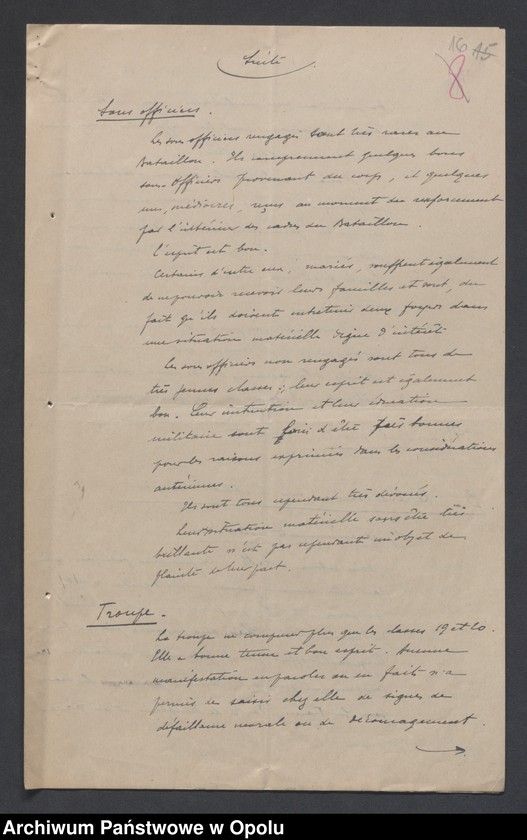 16 15
8
Suite.
Sous officiers.
Les sous officiers rengagés sont très rares au
Bataillon. Ils comprennent quelques bons
sous-Officiers provenant du corps, et quelques
uns, médiocres, reçus au moment du renforcement
par l'intérieur des cadres du Bataillon.
L'esprit est bon.
Certains d'entre eux, mariés, souffrent également
de ne pouvoir recevoir leurs familles et sont, du
fait qu'ils doivent entretenir deux foyers dans
une situation matérielle digne d'intérêt.
Les sous officiers non rengagés sont tous de
très jeunes classes; leur esprit est également
bon. Leur instruction et leur éducation
militaire sont loin d'être très bonnes
pour les raisons exprimées dans les considérations
antérieures.
Ils sont tous cependant très dévoués.
Leur situation matérielle sans être très
brillante n'est pas cependant un objet de
plainte de leur part.
Troupe.
La troupe ne comprend plus que les classes 19 et 20.
Elle a bonne tenue et bon esprit. Aucune
manifestation en paroles ou en faits n'a
permis de saisir chez elle de signes de
défaillance morale ou de découragement.
Archiwum Państwowe w Opolu